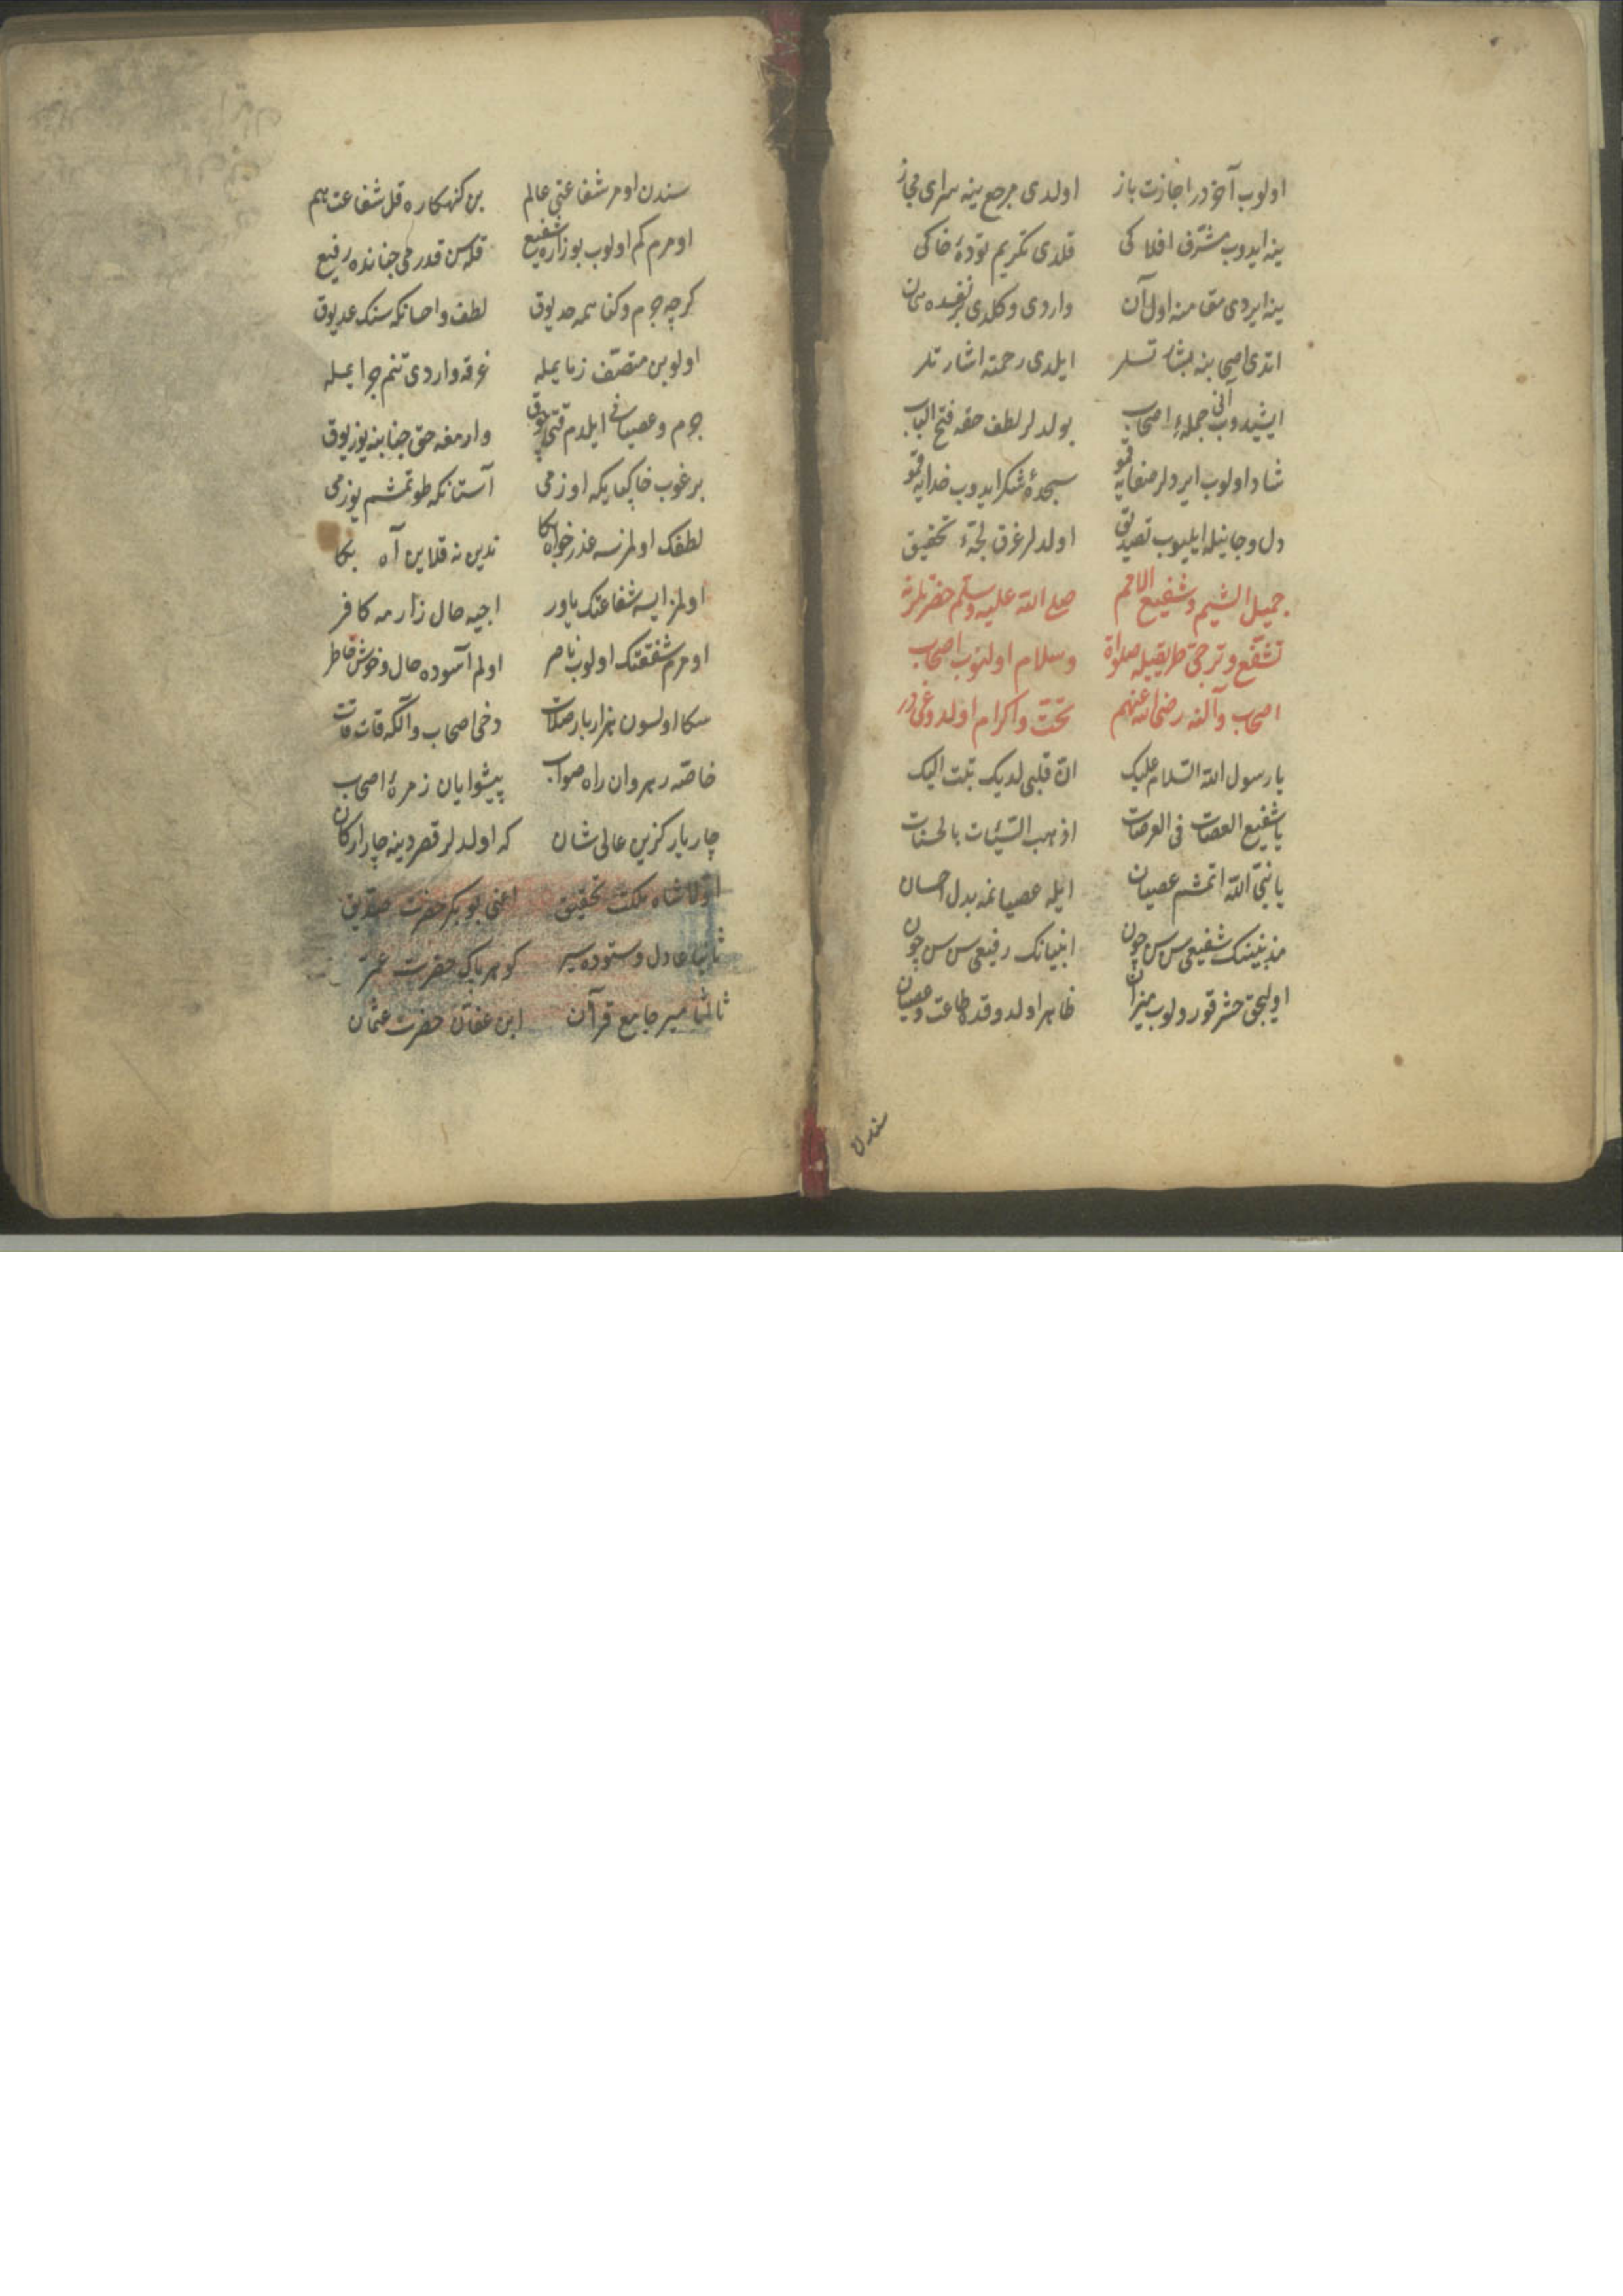 اولوب آخر در اجازت باز اولدی مرجع ینه سرای مجاز
ینه ایدوب مشرف افلاکی قلدی تکریم تودهٔ خاکی
ینه ایردی مقامنه اول آن واردی وکلدی بر نفسده همان
اتدی اصحابنه بشارتلر ایلدی رحمته اشارتلر
ایشیدوب آنی جملهٔ اصحاب بولدلر لطف حقه فتح الباب
شاد اولوب ایردلر صفایه قمو سجدهٔ شکر ایدوب خدایه قمو
دل وجانیله ایلیوب تصدیق اولدلر غرق لجّهٔ تحقیق
جمیل الشیم وشفیع الامم صلی الله علیه وسلم حضرتلرنه
تشفع وترجی طریقیله صلواة وسلام اولنوب اصحاب
اصحاب وآلنه رضی الله عنهم تحیّت واکرام اولدوغی در
یا رسول الله السلام علیک انّ قلبی لدیک تبت الیک
یا شفیع العصات فی العرصات اذهب السّیئات بالحسنات
یا نبیّ الله اتمشم عصیان ایله عصیانمه بدل احسان
مذنبینک شفیعی سن سن چون انبیانک رفیعی سن سن چون
اولیجق حشر قورولوب میزان ظاهر اولدوقده طاعت وعصیان
سندن
سندن اومر شفاعتی عالم بن کنهکاره قل شفاعت هم
اومرم کم اولوب بو زاره شفیع قله سن قدرمی جنانده رفیع
کرچه جرم وکناهمه حد یوق لطف واحسانکه سنک عد یوق
اولوبن متصف زنا یمله غرقه واردی تنم جرا یمله
جرم وعصیانی ایلدم قتی چوق وارمغه حق جنابنه یوز یوق
برغوب خاکپایکه اوزمی آستانکه طوتمشم یوزمی
لطفک اولمزسه عذرخواه بکا ندین نه قلاین آه بکا
اولمز ایسه شفاعتک یاور اجیه حال زارمه کافر
اومرم شفقتک اولوب ناصر اولم آسوده حال وخوش خاطر
سکا اولسون هزار بار صلات دخی اصحاب وآلکه قات قات
خاصّه رهروان راه صواب پیشوایان زمرهٔ اصحاب
چار یار کزین عالی شان که اولدلر قصر دینه چار ارکان
اوّلا شاه ملکت تحقیق اعنی بو بکر حضرت صدّیق
ثانیا عادل وستوده سیر کوهر پاک حضرت عمر
ثالثا میر جامع قرآن ابن عفان حضرت عثمان